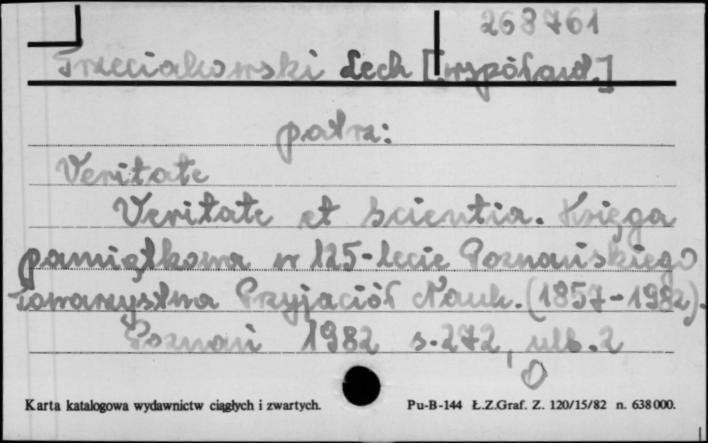 268761
Trzeciakowski Lech [współaut.]
patrz:
Veritate
Veritate et scientia. Księga
pamiątkowa w 125-lecie Poznańskiego
Towarzystwa Przyjaciół Nauk. (1857-1982).
Poznań 1982 s. 272, nlb. 2
Karta katalogowa wydawnictw ciągłych i zwartych. Pu-B-144 Ł.Z.Graf. Z. 120/15/82 n. 638000.